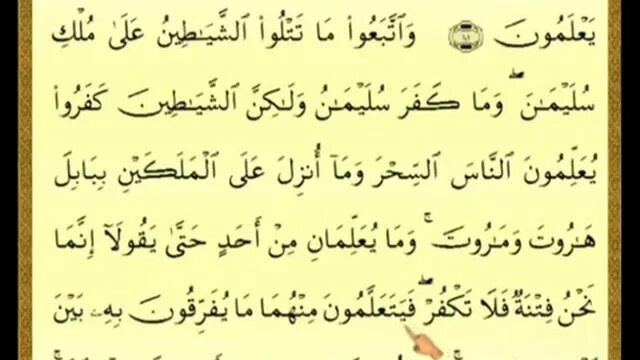 يَعْلَمُونَ ۝ وَاتَّبَعُوا۟ مَا تَتْلُوا۟ الشَّيَاطِينُ عَلَىٰ مُلْكِ
سُلَيْمَـٰنَ ۖ وَمَا كَفَرَ سُلَيْمَـٰنُ وَلَـٰكِنَّ الشَّيَاطِينَ كَفَرُوا۟
يُعَلِّمُونَ النَّاسَ السِّحْرَ وَمَآ أُنزِلَ عَلَى الْمَلَكَيْنِ بِبَابِلَ
هَـٰرُوتَ وَمَـٰرُوتَ ۚ وَمَا يُعَلِّمَانِ مِنْ أَحَدٍ حَتَّىٰ يَقُولَآ إِنَّمَا
نَحْنُ فِتْنَةٌ فَلَا تَكْفُرْ ۖ فَيَتَعَلَّمُونَ مِنْهُمَا مَا يُفَرِّقُونَ بِهِۦ بَيْنَ